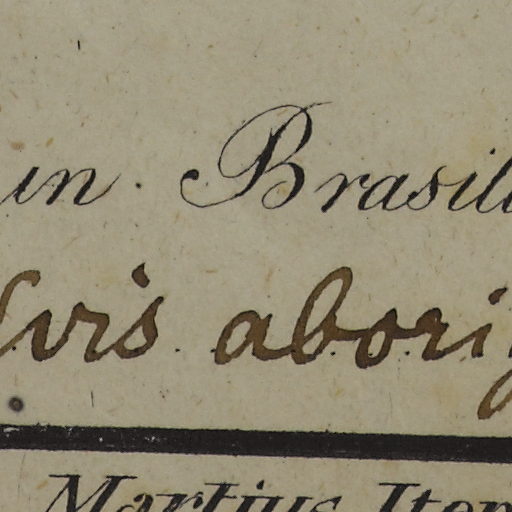 in Brasili
lvis aborig
Martius Iter